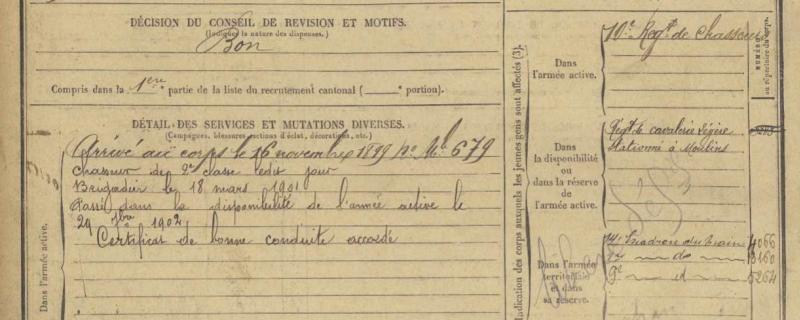 DÉCISION DU CONSEIL DE REVISION ET MOTIFS.
(Indiquer la nature des dispenses.)
Bon
Compris dans la 1ère partie de la liste du recrutement cantonal ( ° portion).
DÉTAIL DES SERVICES ET MUTATIONS DIVERSES.
(Campagnes, blessures, actions d'éclat, décorations, etc.)
Arrivé au corps le 16 novembre 1899 Mle 679
Chasseur de 2e classe ledit jour
Brigadier le 18 mars 1901
Passé dans la disponibilité de l'armée active le
29 7bre 1902
Certificat de bonne conduite accordé
Dans l'armée active.
Indication des corps auxquels les jeunes gens sont affectés (3).
Dans
l'armée active.
10e Régt de Chasseurs
NUMÉRO
au répertoire du corps.
Dans
la disponibilité
ou
dans la réserve
de
l'armée active.
Régt de cavalerie légère
stationné à Moulins
Dans l'armée
territoriale
et dans
sa réserve.
Escadron du train 4066
d° 3160
9e d° 5264